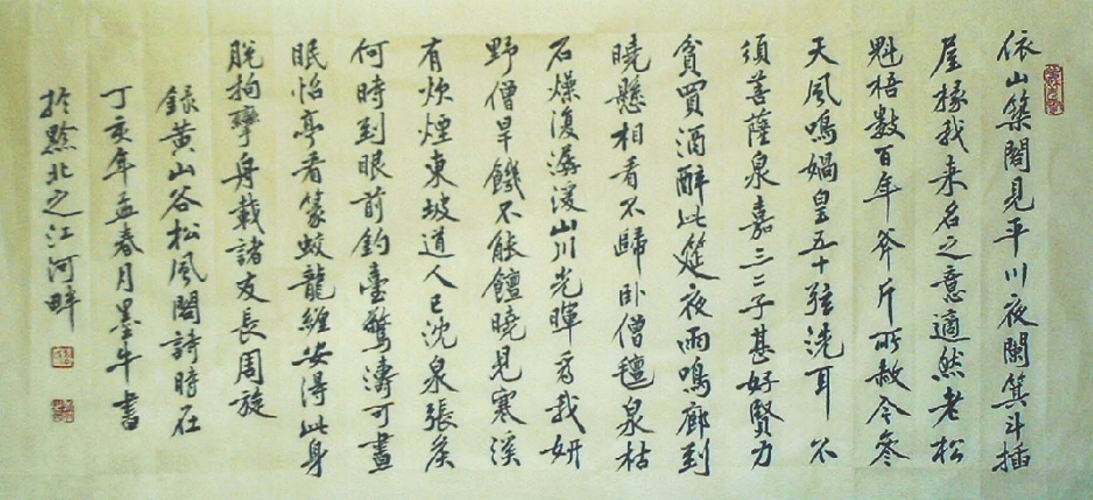 依山築閣見平川夜闌箕斗插
屋椽我來名之意適然老松
魁梧數百年斧斤所赦今參
天風鳴媧皇五十弦洗耳不
須菩薩泉嘉三二子甚好賢力
貧買酒醉此筵夜雨鳴廊到
曉懸相看不歸臥僧氈泉枯
石燥復潺湲山川光暉為我妍
野僧旱饑不能饘曉見寒溪
有炊煙東坡道人已沈泉張侯
何時到眼前釣臺驚濤可晝
眠怡亭看篆蛟龍纏安得此身
脫拘攣舟載諸友長周旋
錄黃山谷松風閣詩時在
丁亥年孟春月墨牛書
於黔北之江河畔